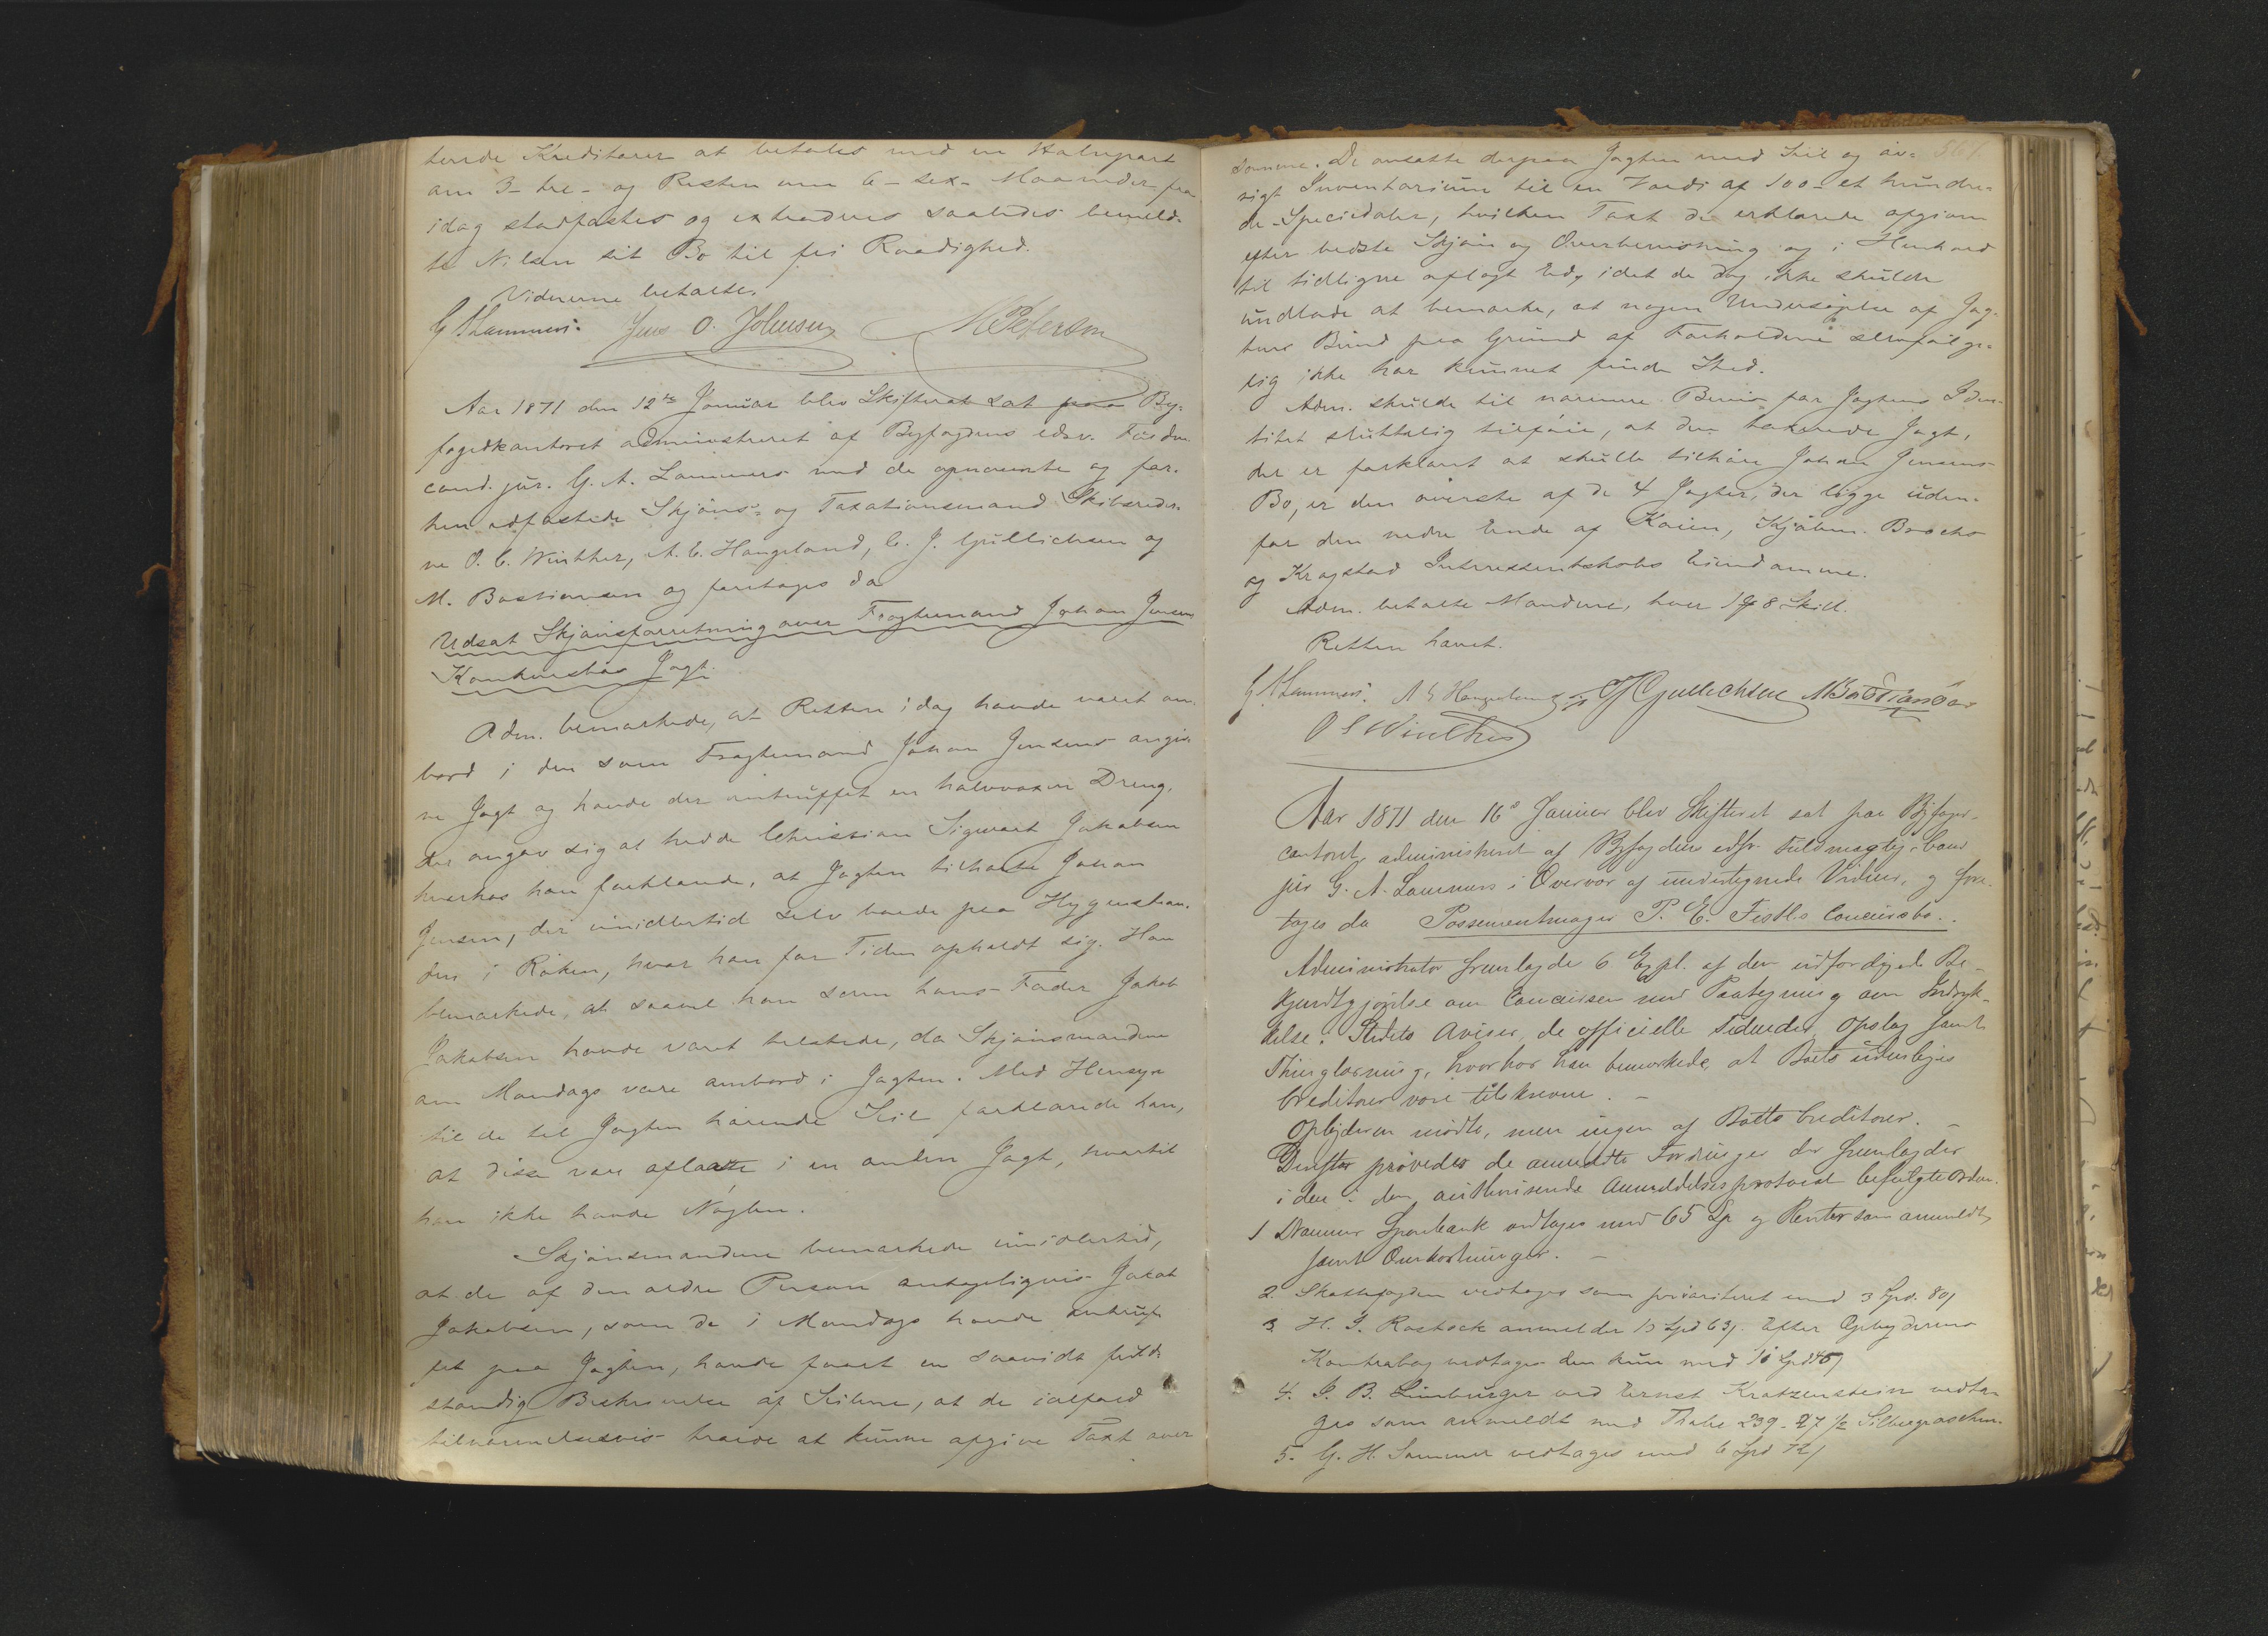 tende Kreditorer at betales med en Halvpart
om 3- tre- og Resten om 6- sex- Maaneder fra
idag stadfæstes og extraderes saaledes bemeld-
te Nilsen sit Bo til fri Raadighed.
Vidnerne betalte.
G A Lammers. Jens O. Johnsen M Peterson
Aar 1871 den 12te Januar blev Skifteret sat paa By-
fogedkontoret administreret af Byfogdens edsv. Fuldm.
cand. jur. G. A. Lammers med de opnævnte og for-
hen edfæstede Skjøns- og Taxationsmænd Skibsreder-
ne O. C. Winther, A. E. Haugeland, C. J. Gullichsen og
M. Bastiansen og foretages da
Udsat Skjønsforretning over Fragtemand Johan Jensens
Konkursbos Jagt.
Adm. bemærkede, at Retten idag havde været om-
bord i den som Fragtemand Johan Jensens angiv-
ne Jagt og havde der intruffet en halvvoxen Dreng,
der angav sig at hedde Christian Sigwart Jakobsen
hvorhos han forklarede, at Jagten tilhørte Johan
Jensen, der imidlertid selv boede paa Hyggenstran-
den i Røken, hvor han for Tiden opholdt sig. Han
bemærkede, at saavel han som hans Fader Jakob
Jakobsen havde været tilstede, da Skjønsmændene
om Mandags vare ombord i Jagten. Med Hensyn
til de til Jagten hørende Seil forklarede han,
at disse vare aflaaste i en anden Jagt, hvortil
han ikke havde Nøglen.
Skjønsmændene bemærkede imidlertid,
at de af den ældre Person antageligvis Jakob
Jakobsen, som de i Mandags havde intruf-
fet paa Jagten, havde faaet en saavidt fuld-
stændig Beskrivelse af Seilene, at de ialfald
tilnærmelsesvis troede at kunne afgive Taxt over
samme. De ansatte derpaa Jagten med Seil og øv- 561
rigt Inventarium til en Værdi af 100- et hundre-
de Speciedaler, hvilken Taxt de erklærede afgiven
efter bedste Skjøn og Overbevisning og i Henhold
til tidligere aflagt Ed, idet de dog ikke skulde
undlade at bemærke, at nogen Undersøgelse af Jag-
tens Bund paa Grund af Forholdene selvfølge-
lig ikke har kunnet finde Sted.
Adm. skulde til nærmere Bevis for Jagtens Iden-
titet sluttelig tilføie, at den taxerede Jagt,
der er forklaret at skulle tilhøre Johan Jensens
Bo, er den øverste af de 4 Jagter, der ligge uden-
for den nedre Ende af Kaien, Kjøbm. Boochs
og Kragstad Interessentskabs Eiendomme.
Adm. betalte Mændene, hver 1 8 Skill.
Retten hævet.
G A Lammers. A E Haugeland CJ Gullichsen M Bastiansen
O C Winther
Aar 1871 den 16de Januar blev Skifteret sat paa Byfoged-
contoret administreret af Byfogdens edsv. Fuldmægtig, cand
jur G. A. Lammers i Overvær af undertegnede Vidner, og fore-
tages da Possementmager P. E. Festls Concursbo.
Administrator fremlagde 6 Expl. af den udfærdigede Be-
kjendtgjørelse om Concursen med Paategning om Indryk-
kelse i Stedets Aviser, de officielle Tidender, Opslag samt
Thinglæsning, hvorhos han bemærkede, at Boets udenbyes
Creditorer vare tilskrevne. -
Opbyderen mødte, men ingen af Boets Creditorer. -
Derefter prøvedes de anmeldte Fordringer der fremlagdes
i den i den authoriserede Anmeldelsesprotocol befulgte Orden.
1 Drammens Sparebank vedtages med 65 Sp og Renter som anmeldt
samt Omkostninger. -
2. Skattefogden vedtages som prioriteret med 3 Spd. 80
3. H. J. Rostock anmelder 13 Spd 63. Efter Opbyderens
Kontrabog vedtages den kun med 10 Spd 45
4. J. B. Limburger ved Ernst Kratzenstein vedta-
ges som anmeldt med Thaler 239-27 1/2 Silbergroschen.
5. G. H. Sommer vedtages med 6 Spd 72